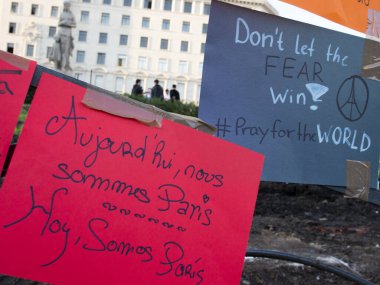 Aujourd'hui, nous
sommes Paris
~~~~~~
Hoy, Somos París
Don't let the
FEAR
win!
#Pray for the WORLD